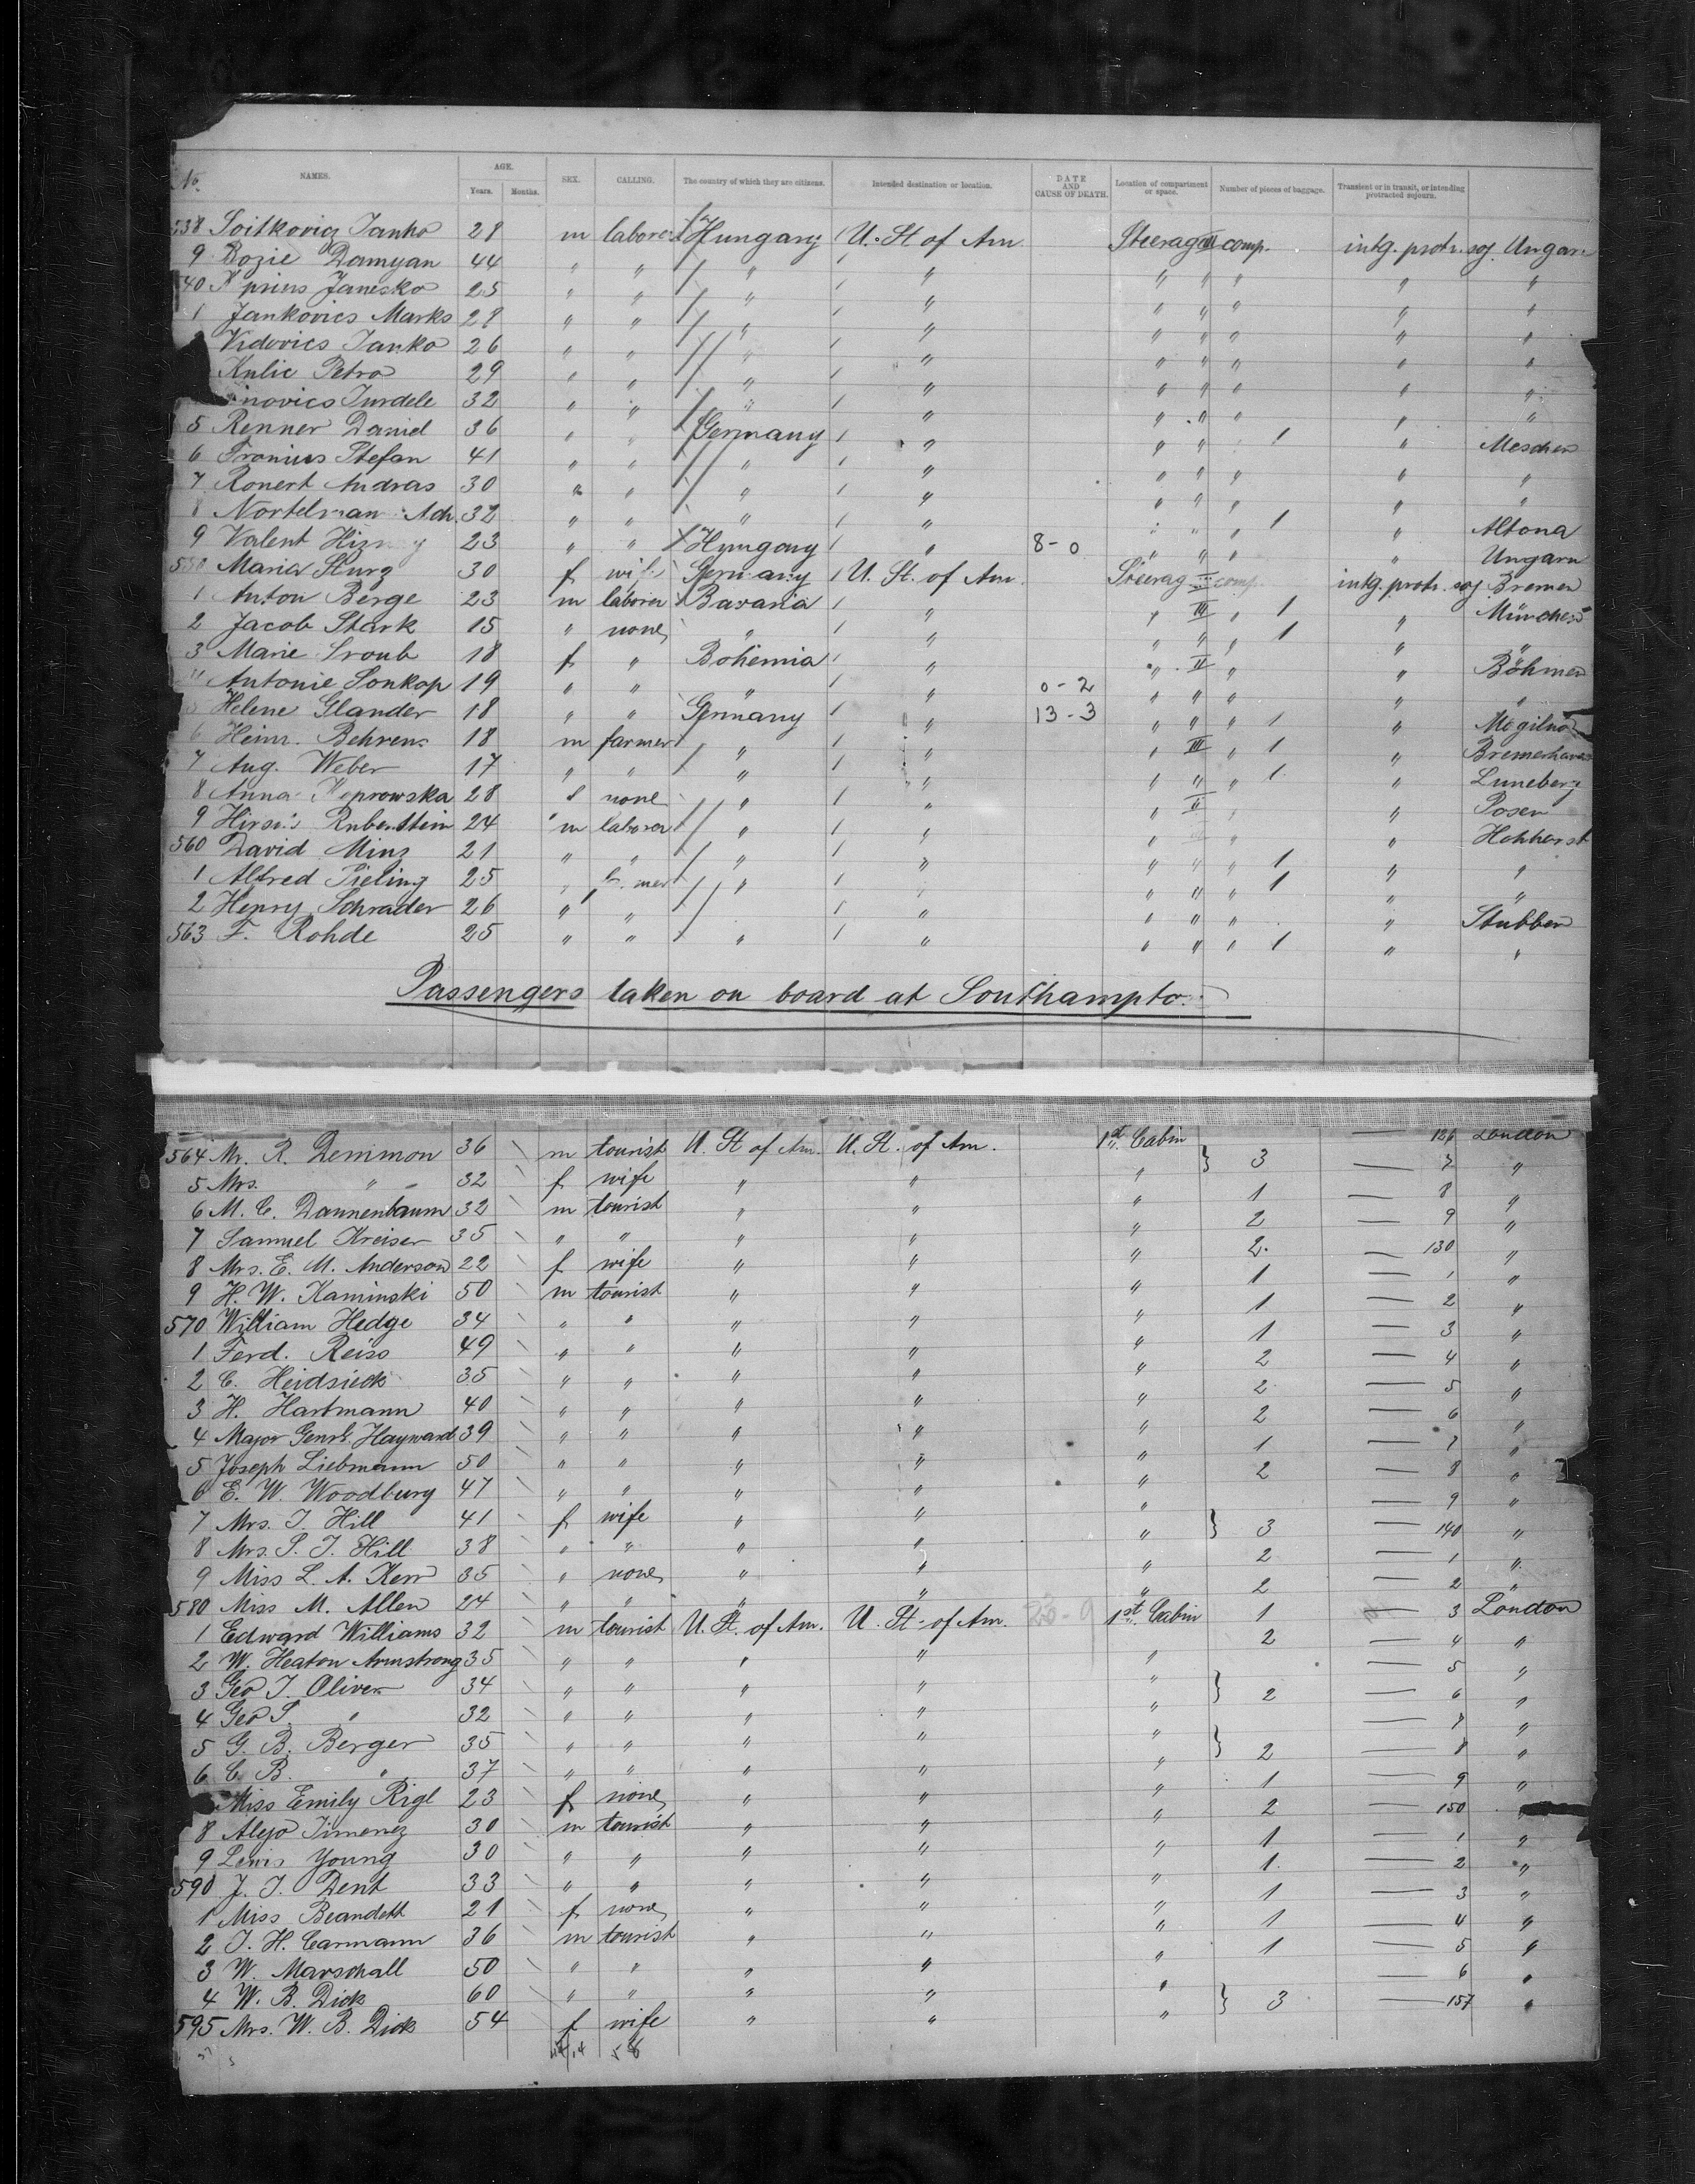 No. NAMES. AGE. Years. Months. SEX. CALLING. The country of which they are citizens. Intended destination or location. DATE AND CAUSE OF DEATH. Location of compartment or space. Number of pieces of baggage. Transient or in transit, or intending protracted sojourn.
538 Soitkovicz Janko 28 m laborer Hungary U. St of Am Steerage III comp. intg. protr. soj. Ungarn
9 Bozie Damyan 44 " " " " " " " " "
40 Janesko 25 " " " " " " " " "
1 Jankovics Marko 28 " " " " " " " " "
Vidovics Janko 26 " " " " " " " " "
Kulic Petro 29 " " " " " " " " "
inovics Jurdele 32 " " " " " " " " "
5 Renner Daniel 36 " " Germany " " " 1 " Meschen
6 Fronius Stefan 41 " " " " " " " " "
7 Ronert Andras 30 " " " " " " " " "
8 Nortelman Ad. 32 " " " " " " " 1 " Altona
9 Valent Hizny 23 " " Hungary " 8-0 " " " " Ungarn
550 Maria Sturz 30 f wife Germany U. St. of Am. Steerag comp. intg. protr. soj Bremen
1 Anton Berge 23 m laborer Bavaria " " III " 1 " München
2 Jacob Stark 15 " none " " " " " 1 " "
3 Marie Sroub 18 f " Bohemia " " II " " Böhmen
" Antonie Sonkop 19 " " " " 0-2 " " " " "
5 Helene Glander 18 " " Germany " 13-3 " " " 1 " Mogilno
6 Heinr. Behrens 18 m farmer " " " III " 1 " Bremerhaven
7 Aug. Weber 17 " " " " " " " 1 " Luneberg
8 Anna Koprowska 28 f none " " " II " " Posen
9 Hirsch Rubenstein 24 m laborer " " " " " Hohhorst
560 David Minz 21 " " " " " " " 1 " "
1 Alfred Pieling 25 " farmer " " " " " 1 " "
2 Henry Schrader 26 " " " " " " " Stubben
563 F. Rohde 25 " " " " " " " 1 " "
Passengers taken on board at Southampto.
564 Mr. R. Demmon 36 m tourist U. St of Am. U. St. of Am. 1st Cabin } 3 — 126 London
5 Mrs. " 32 f wife " " " — 7 "
6 M. C. Dannenbaum 32 m tourist " " " 1 — 8 "
7 Samuel Kreiser 35 " " " " " 2 — 9 "
8 Mrs. E. M. Anderson 22 f wife " " " 2. — 130 "
9 H. W. Kaminski 50 m tourist " " " 1 — 1 "
570 William Hedge 34 " " " " " 1 — 2 "
1 Ferd. Reiss 49 " " " " " 1 — 3 "
2 C. Heidsieck 35 " " " " " 2 — 4 "
3 H. Hartmann 40 " " " " " 2 — 5 "
4 Major Genrl. Hayward 39 " " " " " 2 — 6 "
5 Joseph Liebmann 50 " " " " " 1 — 7 "
6 E. W. Woodbury 47 " " " " " 2 — 8 "
7 Mrs. J. Hill 41 f wife " " " } 3 — 9 "
8 Mrs. S. J. Hill 38 " " " " " — 140 "
9 Miss L. A. Kerr 35 " none " " " 2 — 1 "
580 Miss M. Allen 24 " " " " " 2 — 2 "
1 Edward Williams 32 m tourist U. St. of Am. U. St. of Am. 1st Cabin 1 — 3 London
2 W. Heaton Armstrong 35 " " " " " 2 — 4 "
3 Geo J. Oliver 34 " " " " " } 2 — 5 "
4 Geo S. " 32 " " " " " — 6 "
5 G. B. Berger 35 " " " " " } 2 — 7 "
6 C. B. " 37 " " " " " — 8 "
Miss Emily Rigl 23 f none " " " 1 — 9 "
8 Alejo Jimenez 30 m tourist " " " 2 — 150 "
9 Lewis Young 30 " " " " " 1 — 1 "
590 J. J. Dent 33 " " " " " 1. — 2 "
1 Miss Beandett 21 f none " " " 1 — 3 "
2 J. H. Carmann 36 m tourist " " " 1 — 4 "
3 W. Marschall 50 " " " " " 1 — 5 "
4 W. B. Dick 60 " " " " " } 3 — 6 "
595 Mrs. W. B. Dick 54 f wife " " " — 157 "